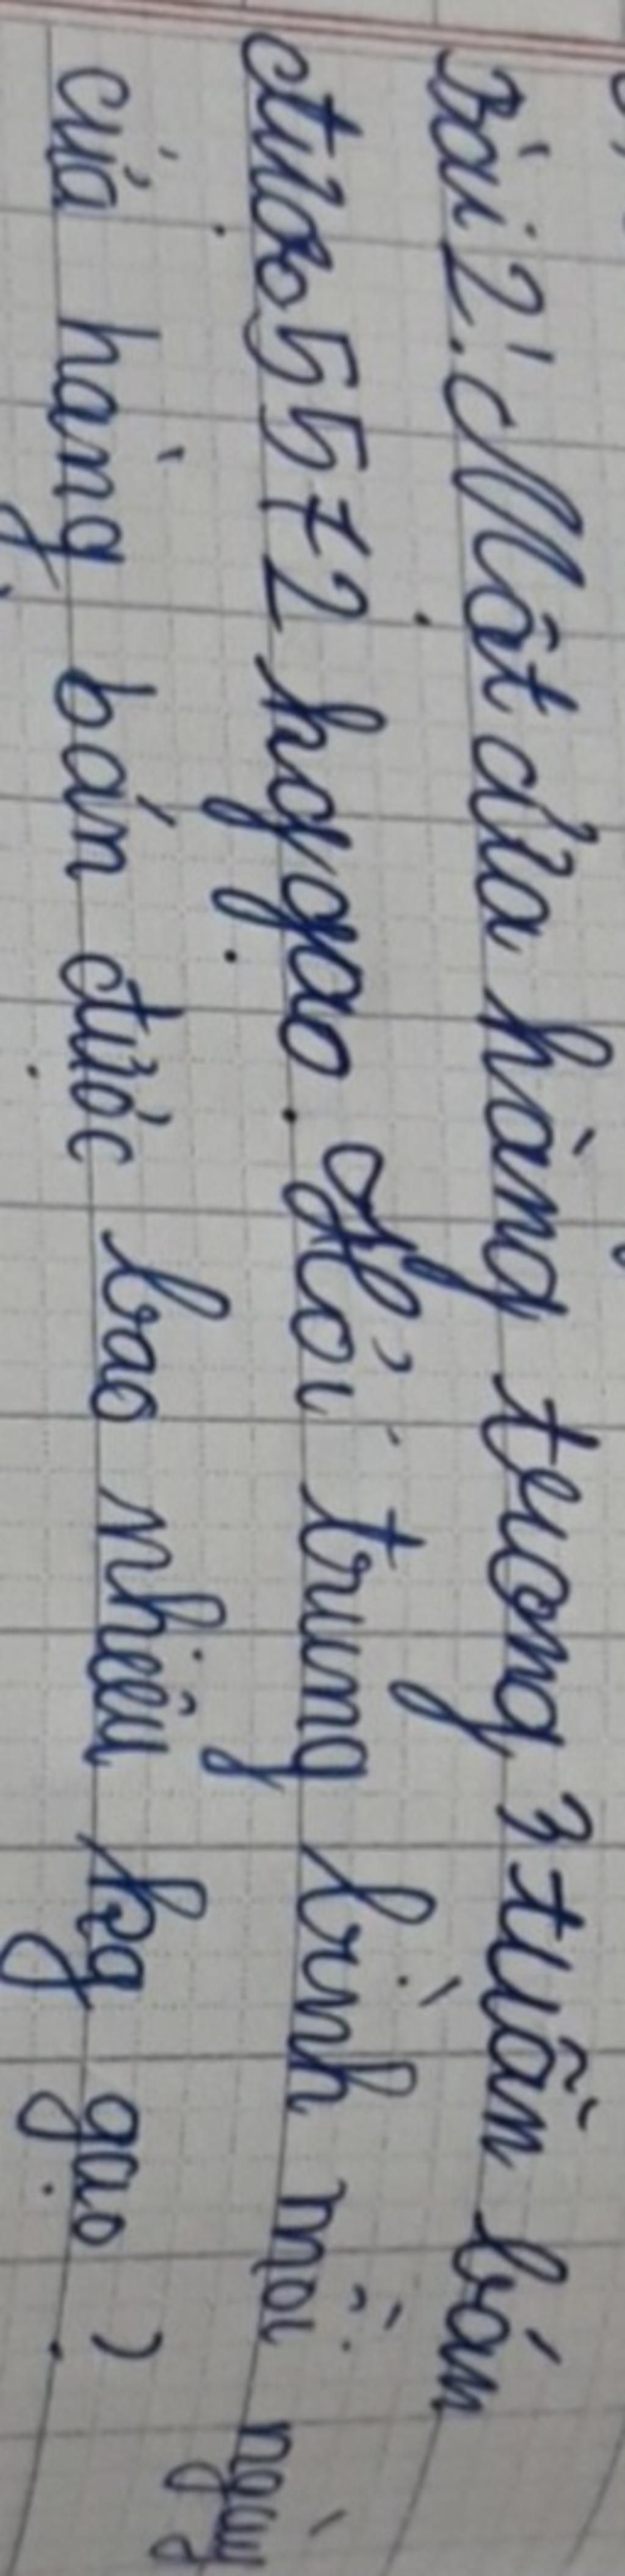 Bài 2: Một cửa hàng trong 3 tuần bán
được 5572 kg gạo. Hỏi trung bình mỗi ngày
cửa hàng bán được bao nhiêu kg gạo?